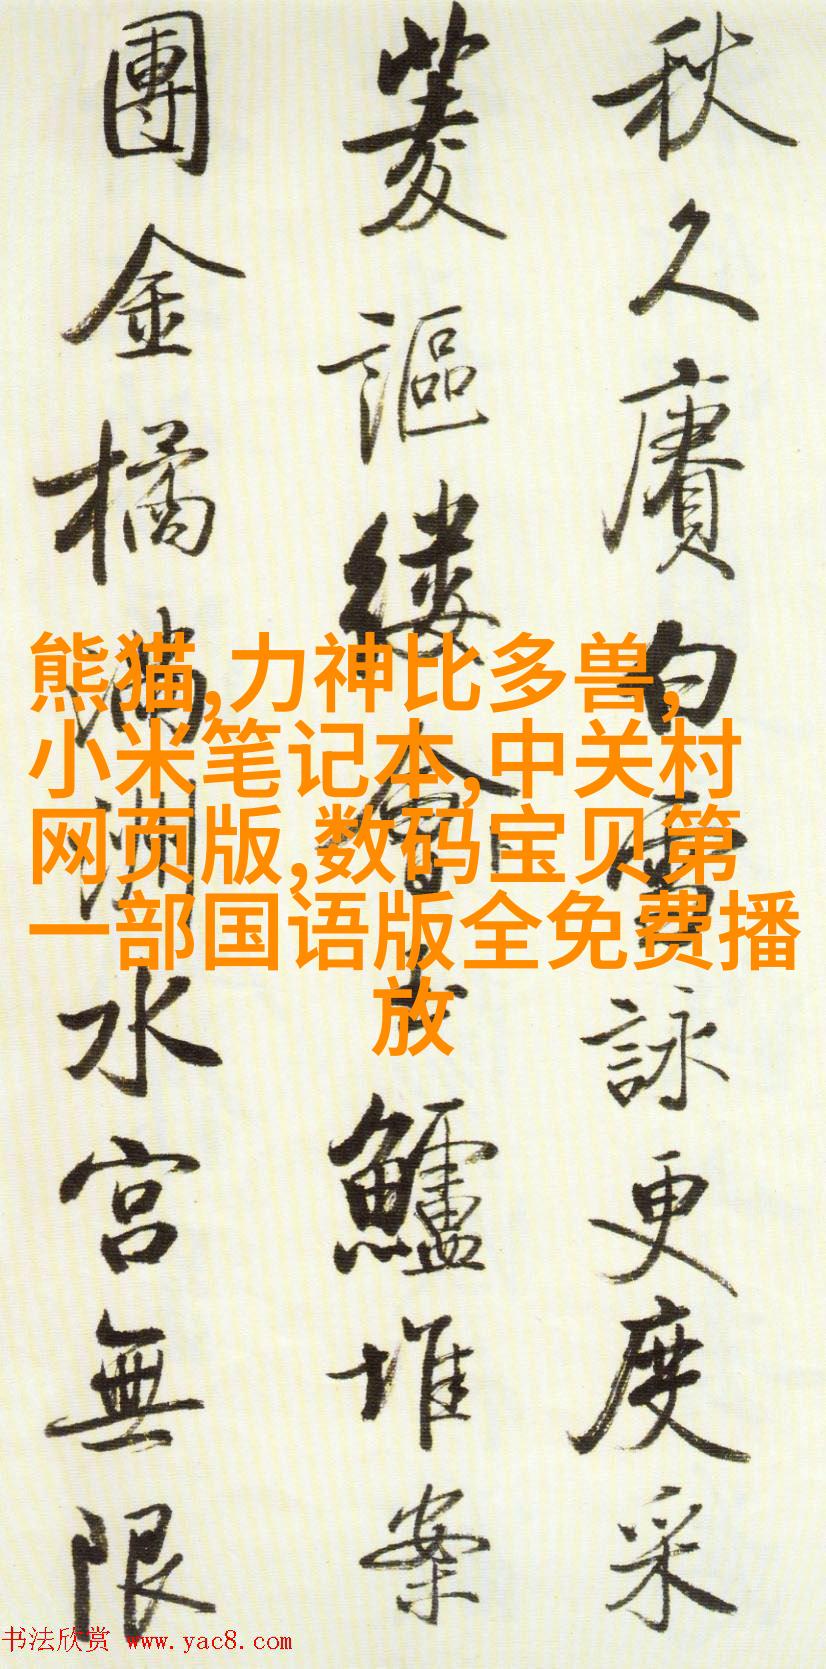 秋久賡白雪詠更度采
菱謳縷會鱸堆案
團金橘滿洲水宮無限
熊猫,力神比多兽,
小米笔记本,中关村
网页版,数码宝贝第
一部国语版全免费播
放
书法欣赏 www.yac8.com